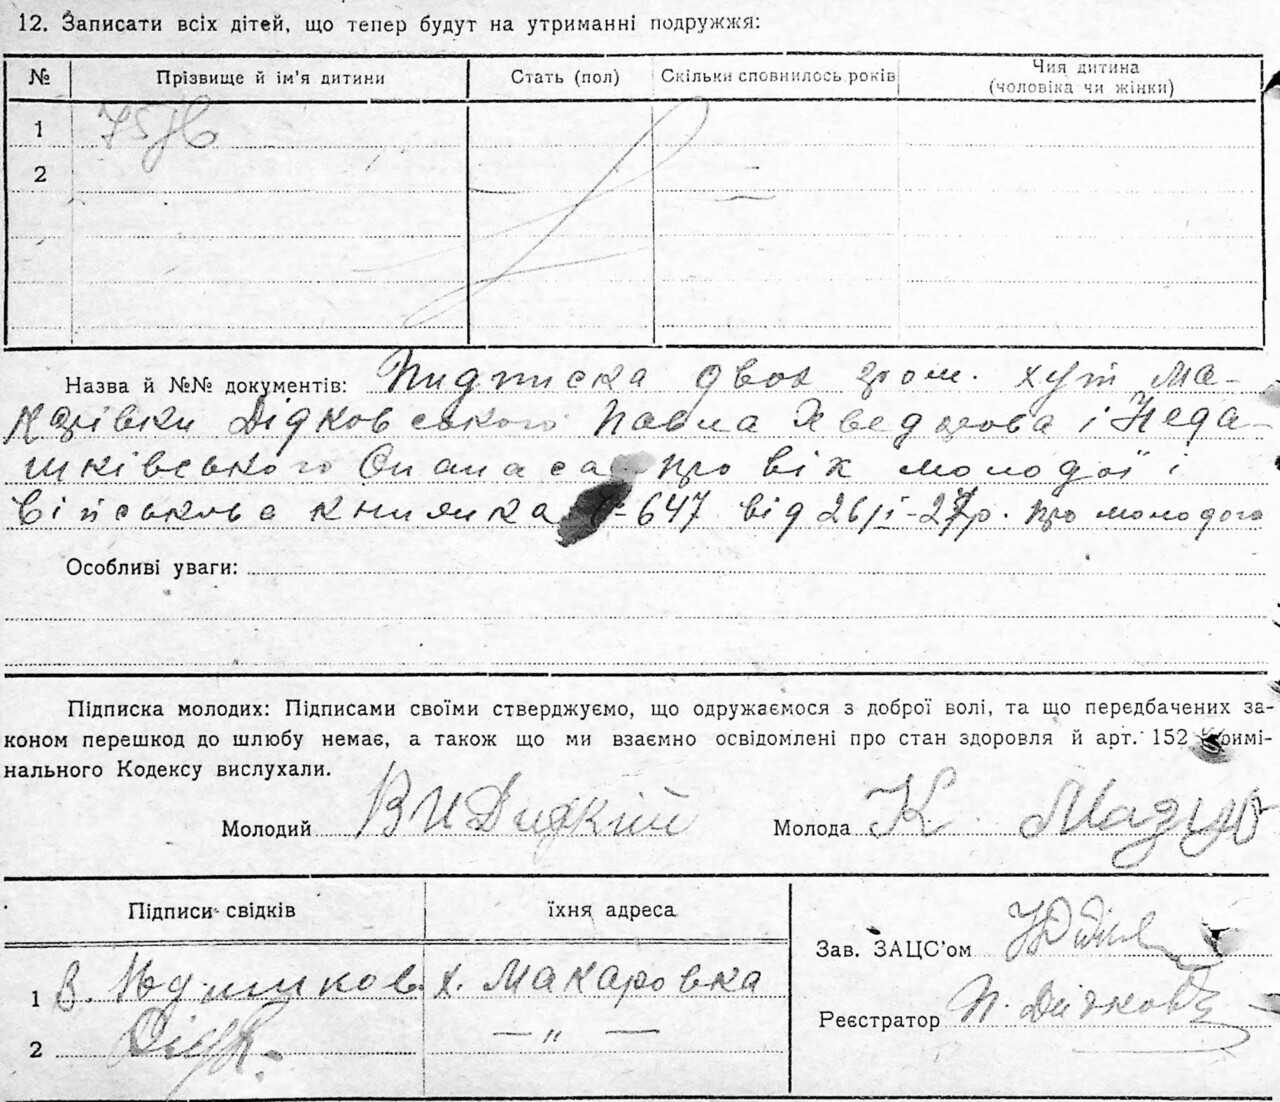 12. Записати всіх дітей, що тепер будут на утриманні подружжя:
№ Прізвище й ім'я дитини Стать (пол) Скільки сповнилось років Чия дитина
(чоловіка чи жінки)
1
2
Назва й №№ документів: Пидписка двох гром. хут Ма-
карівки Дідковського Павла Хведорова і Неда-
шківського Опанаса про вік молодої і
Військова книжка 647 від 26/II-27р. про молодого
Особливі уваги:
Підписка молодих: Підписами своїми стверджуємо, що одружаємося з доброї волі, та що передбачених за-
коном перешкод до шлюбу немає, а також що ми взаємно освідомлені про стан здоровля й арт. 152 Кримі-
нального Кодексу вислухали.
Молодий Молода К Мазур
Підписи свідків їхня адреса
Зав. ЗАЦС'ом
1 В. х. Макаровка
Реєстратор П. Дідковс
2 — „ —